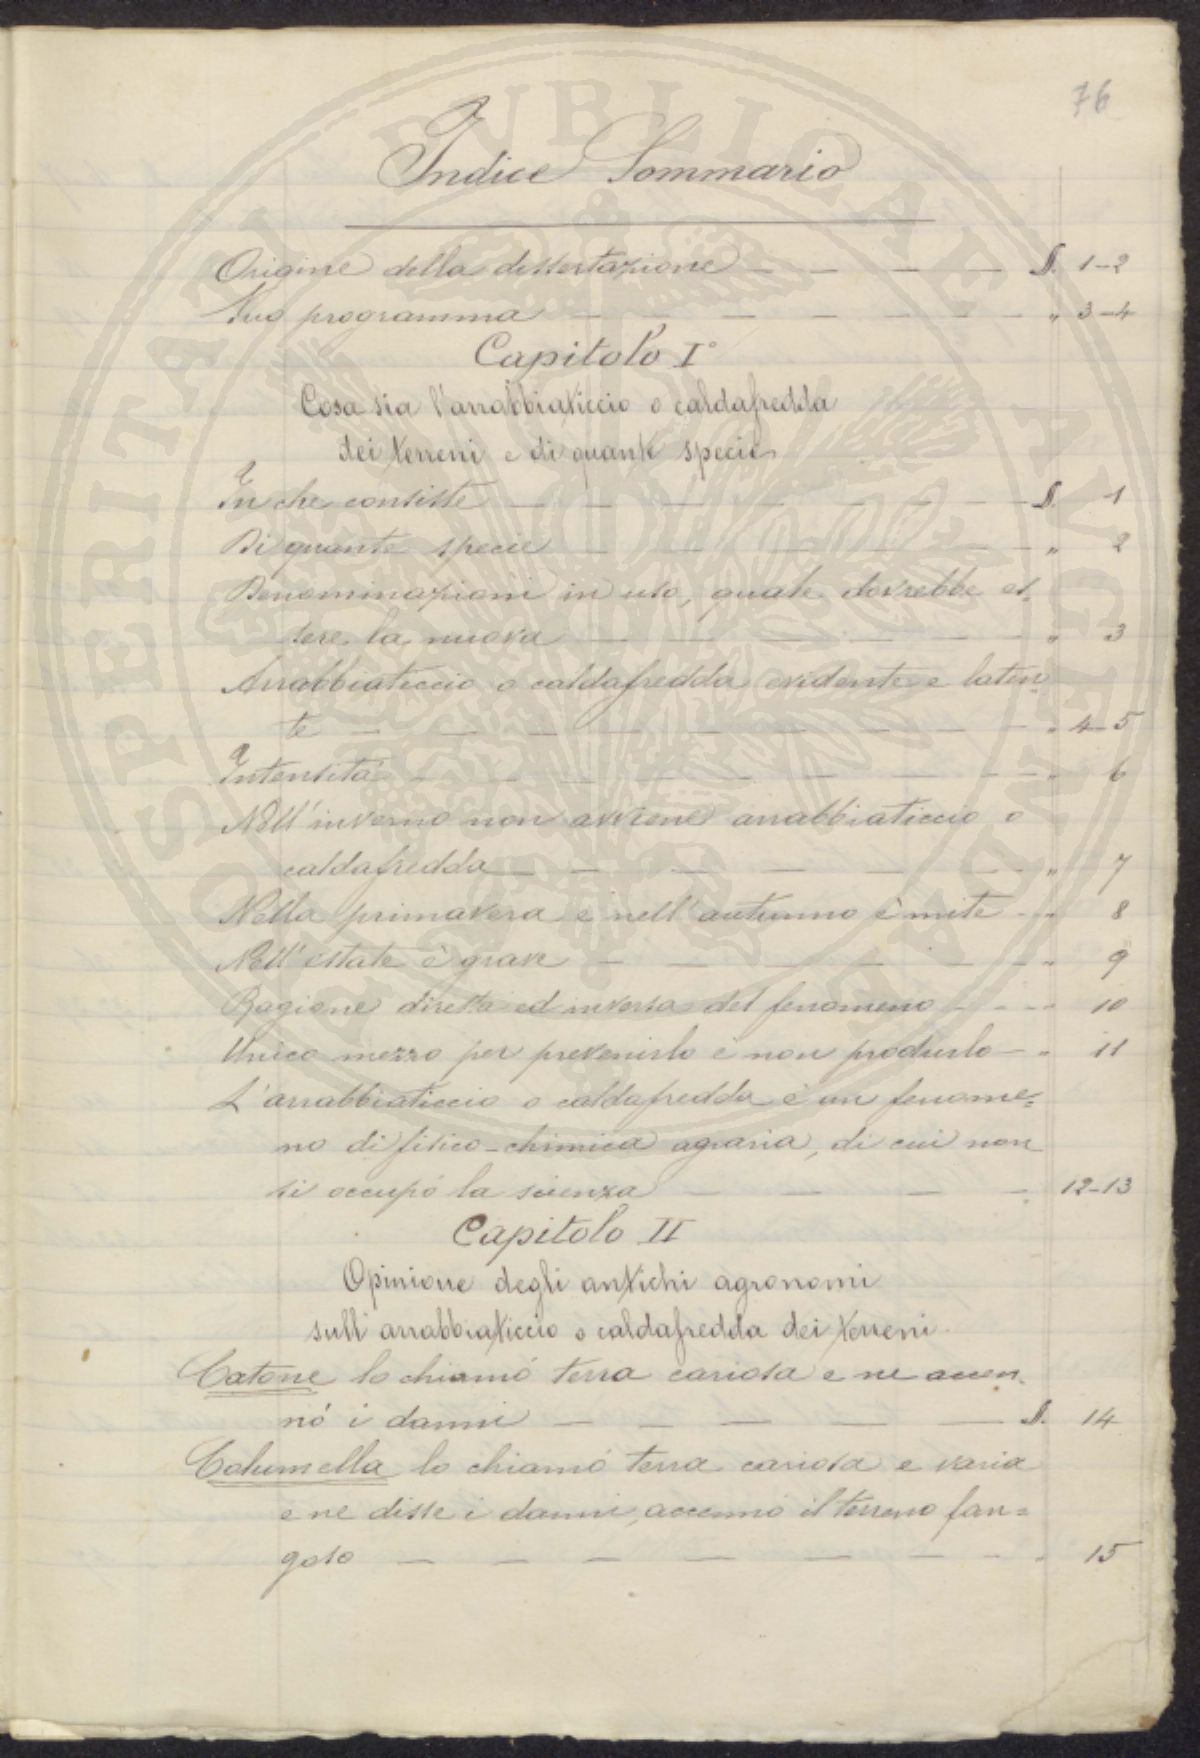 76
Indice Sommario
Origine della dissertazione — — — — §. 1-2
Suo programma — — — — — — — — „ 3-4
Capitolo I°
Cosa sia l'arrabbiaticcio o caldafredda
dei terreni e di quante specie
In che consiste — — — — — — — §. 1
Di quante specie — — — — — — „ 2
Denominazioni in uso, quale dovrebbe es-
sere la nuova — — — — — — „ 3
Arrabbiaticcio o caldafredda evidente e laten-
te — — — — — — — — „ 4-5
Intensità — — — — — — — — „ 6
Nell'inverno non avviene arrabbiaticcio o
caldafredda — — — — — — „ 7
Nella primavera e nell'autunno è mite — „ 8
Nell'estate è grave — — — — — — „ 9
Ragione diretta ed inversa del fenomeno — — „ 10
Unico mezzo per prevenirlo è non produrlo — „ 11
L'arrabbiaticcio o caldafredda è un fenome=
no di fisico-chimica agraria, di cui non
si occupò la scienza — — — — „ 12-13
Capitolo II
Opinione degli antichi agronomi
sull'arrabbiaticcio o caldafredda dei terreni.
Catone lo chiamò terra cariosa e ne accen-
nò i danni — — — — — §. 14
Columella lo chiamò terra cariosa e varia
e ne disse i danni, accennò il terreno fan=
goso — — — — — — — „ 15
PROSPERITATI PVBLICAE AVGENDAE